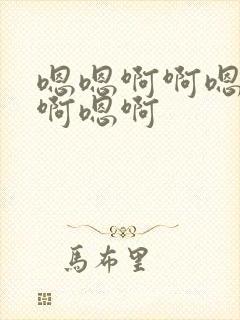 嗯嗯啊啊嗯
啊嗯啊
馬布里